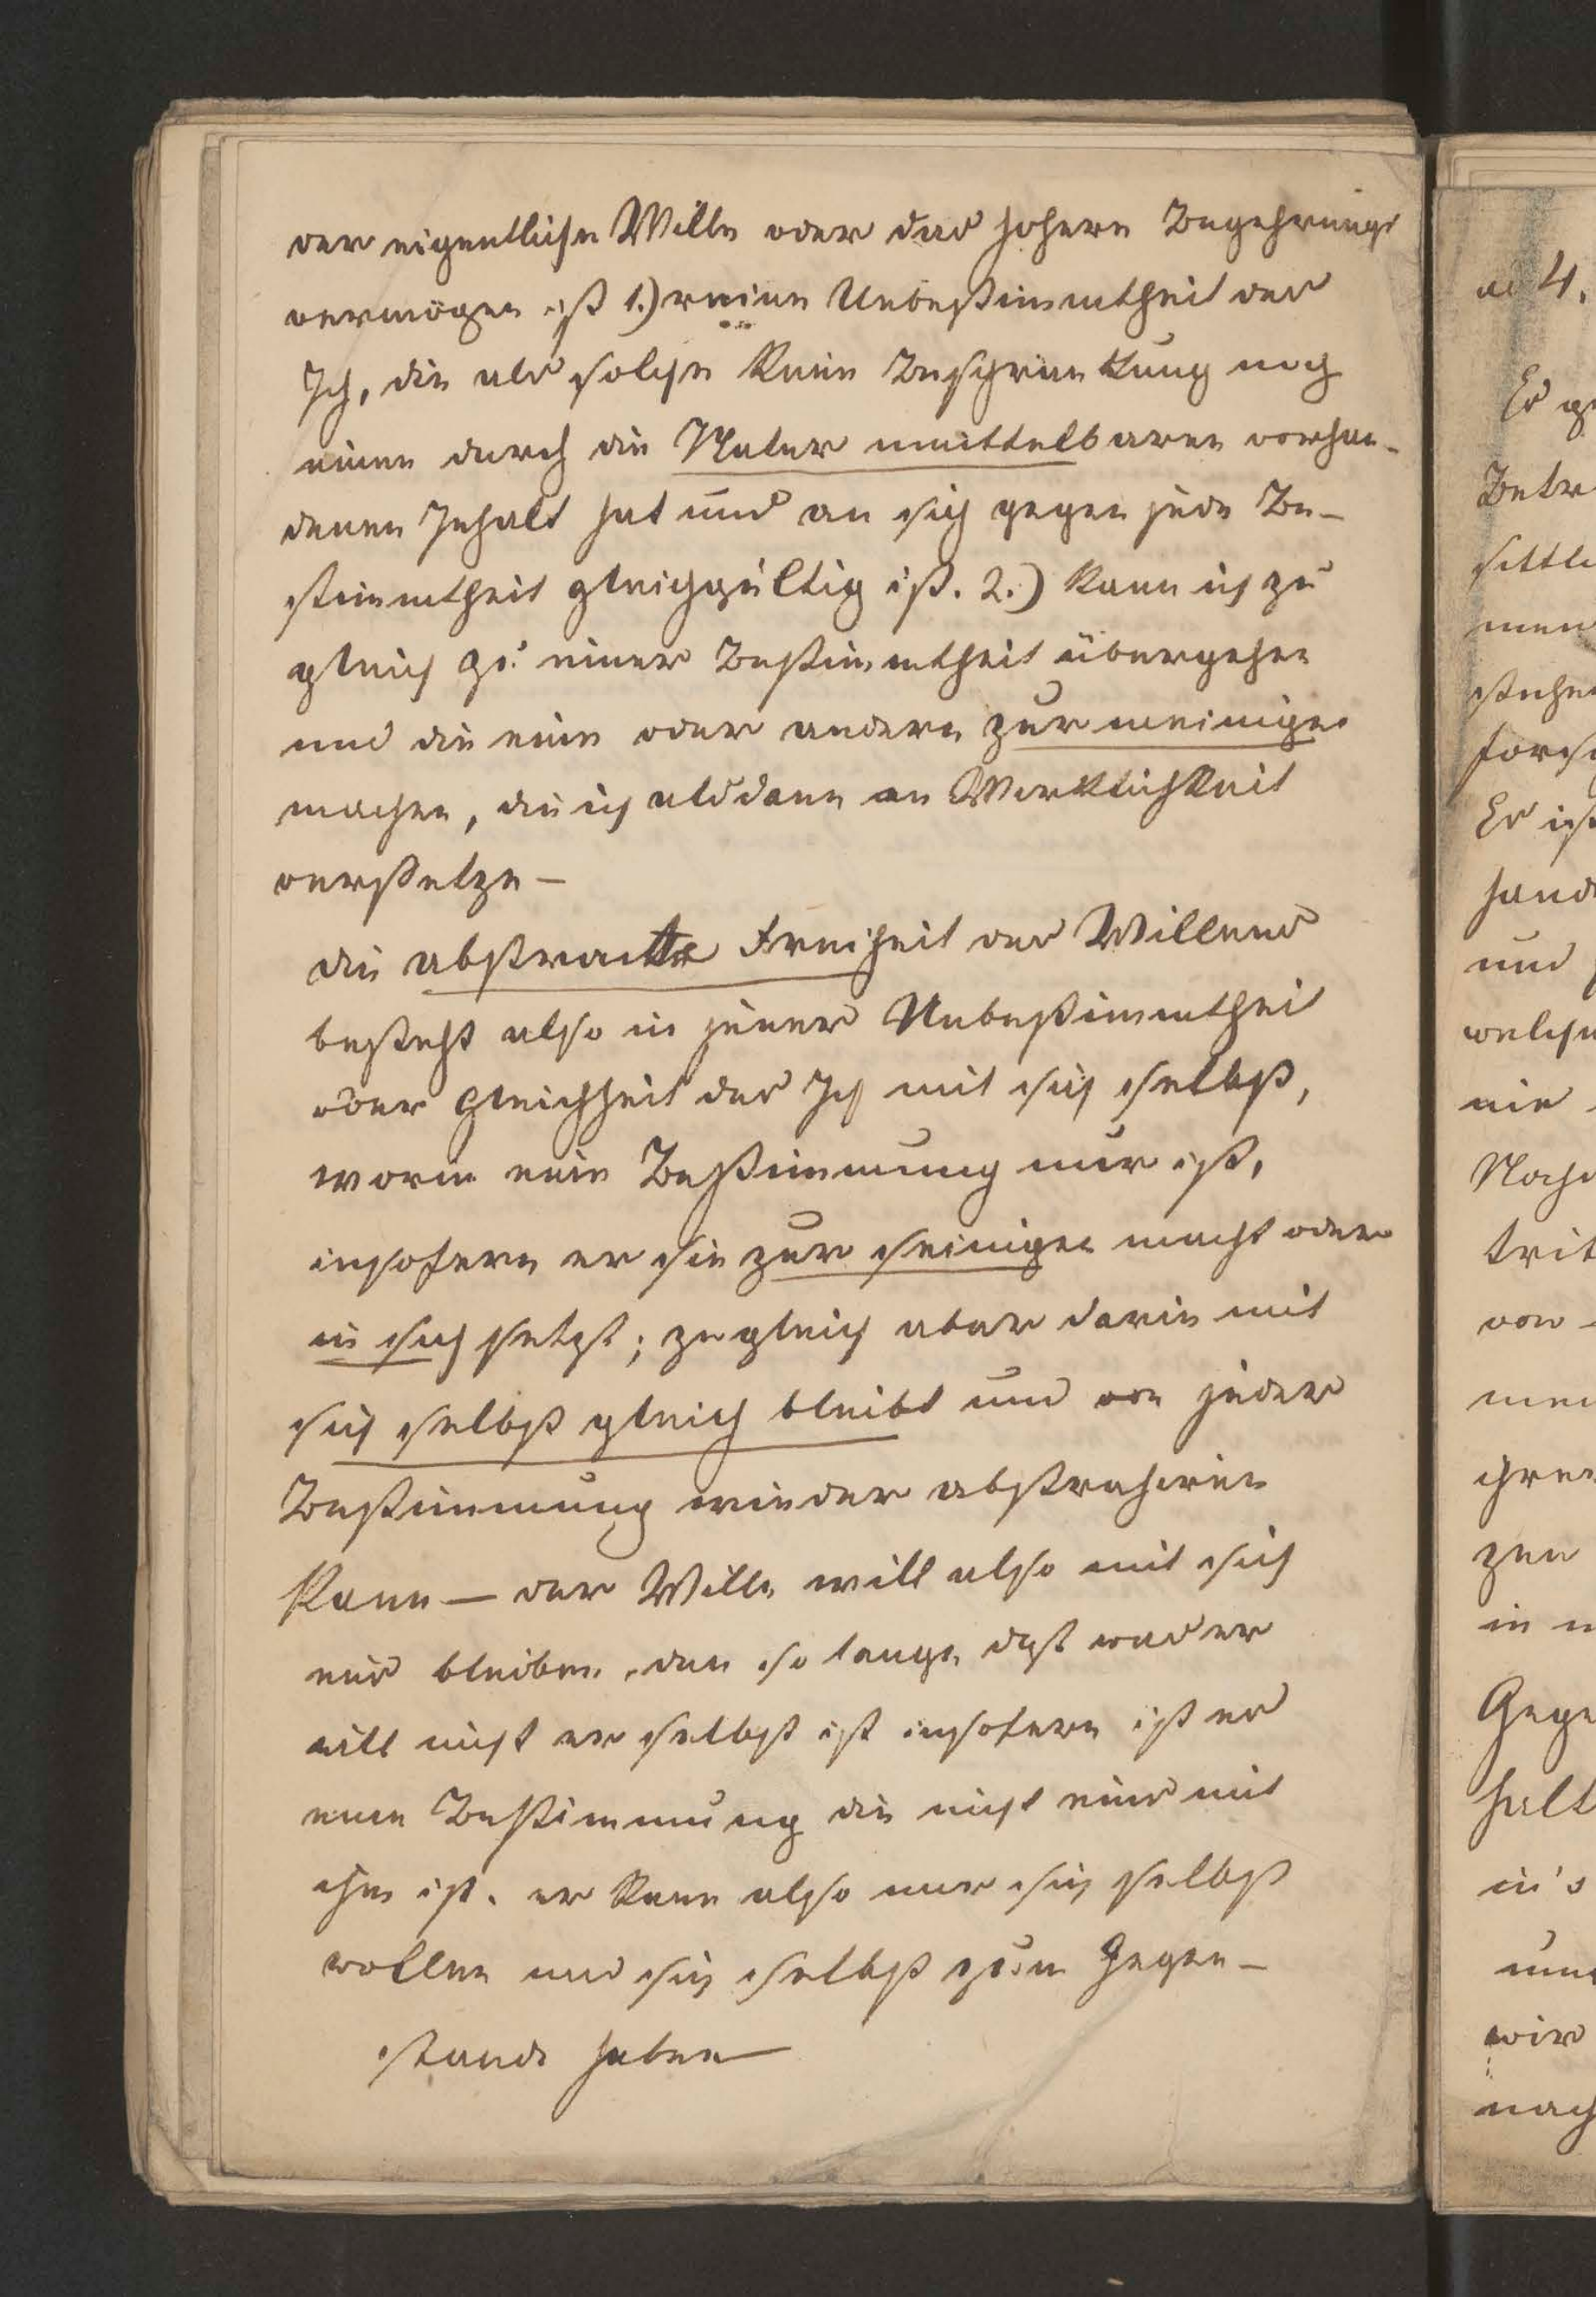 der eigentliche Wille oder das hohere Begehrungs
vermögen ist 1.) reine Unbestimmtheit des
Ich, die als solche keine Beschränkung noch
einen durch die Natur unmittelbaren vorhan-
denen Inhalt hat und an sich gegen jede Be-
stimmtheit gleichgültig ist. 2.) kann ich zu
gleich zu einer Bestimmtheit übergehen
und die eine oder andere zur meinigen
machen, die ich alsdann in Wirklichkeit
versetze —
die abstracte Freiheit des Willens
besteht also in jener Unbestimmtheit
oder Gleichheit des Ich mit sich selbst,
worin eine Bestimmung nur ist,
insofern er sie zur seinigen macht oder
in sich setzt; zugleich aber darin mit
sich selbst gleich bleibt und von jeder
Bestimmung wieder abstrahiren
kann — der Wille will also mit sich
eins bleiben, den so lange das was er
will nicht er selbst ist insofern ist es
eine Bestimmung die nicht eins mit
ihm ist. er kann also nur sich selbst
wollen und sich selbst zum Gegen-
stande haben —
4.
Es
Betr
sittli
men
stehen
forsc
Es ist
hand
und
welche
nie
Nach
trit
von
men
ihren
zen
in
Gege
halt
in's
wir
nach